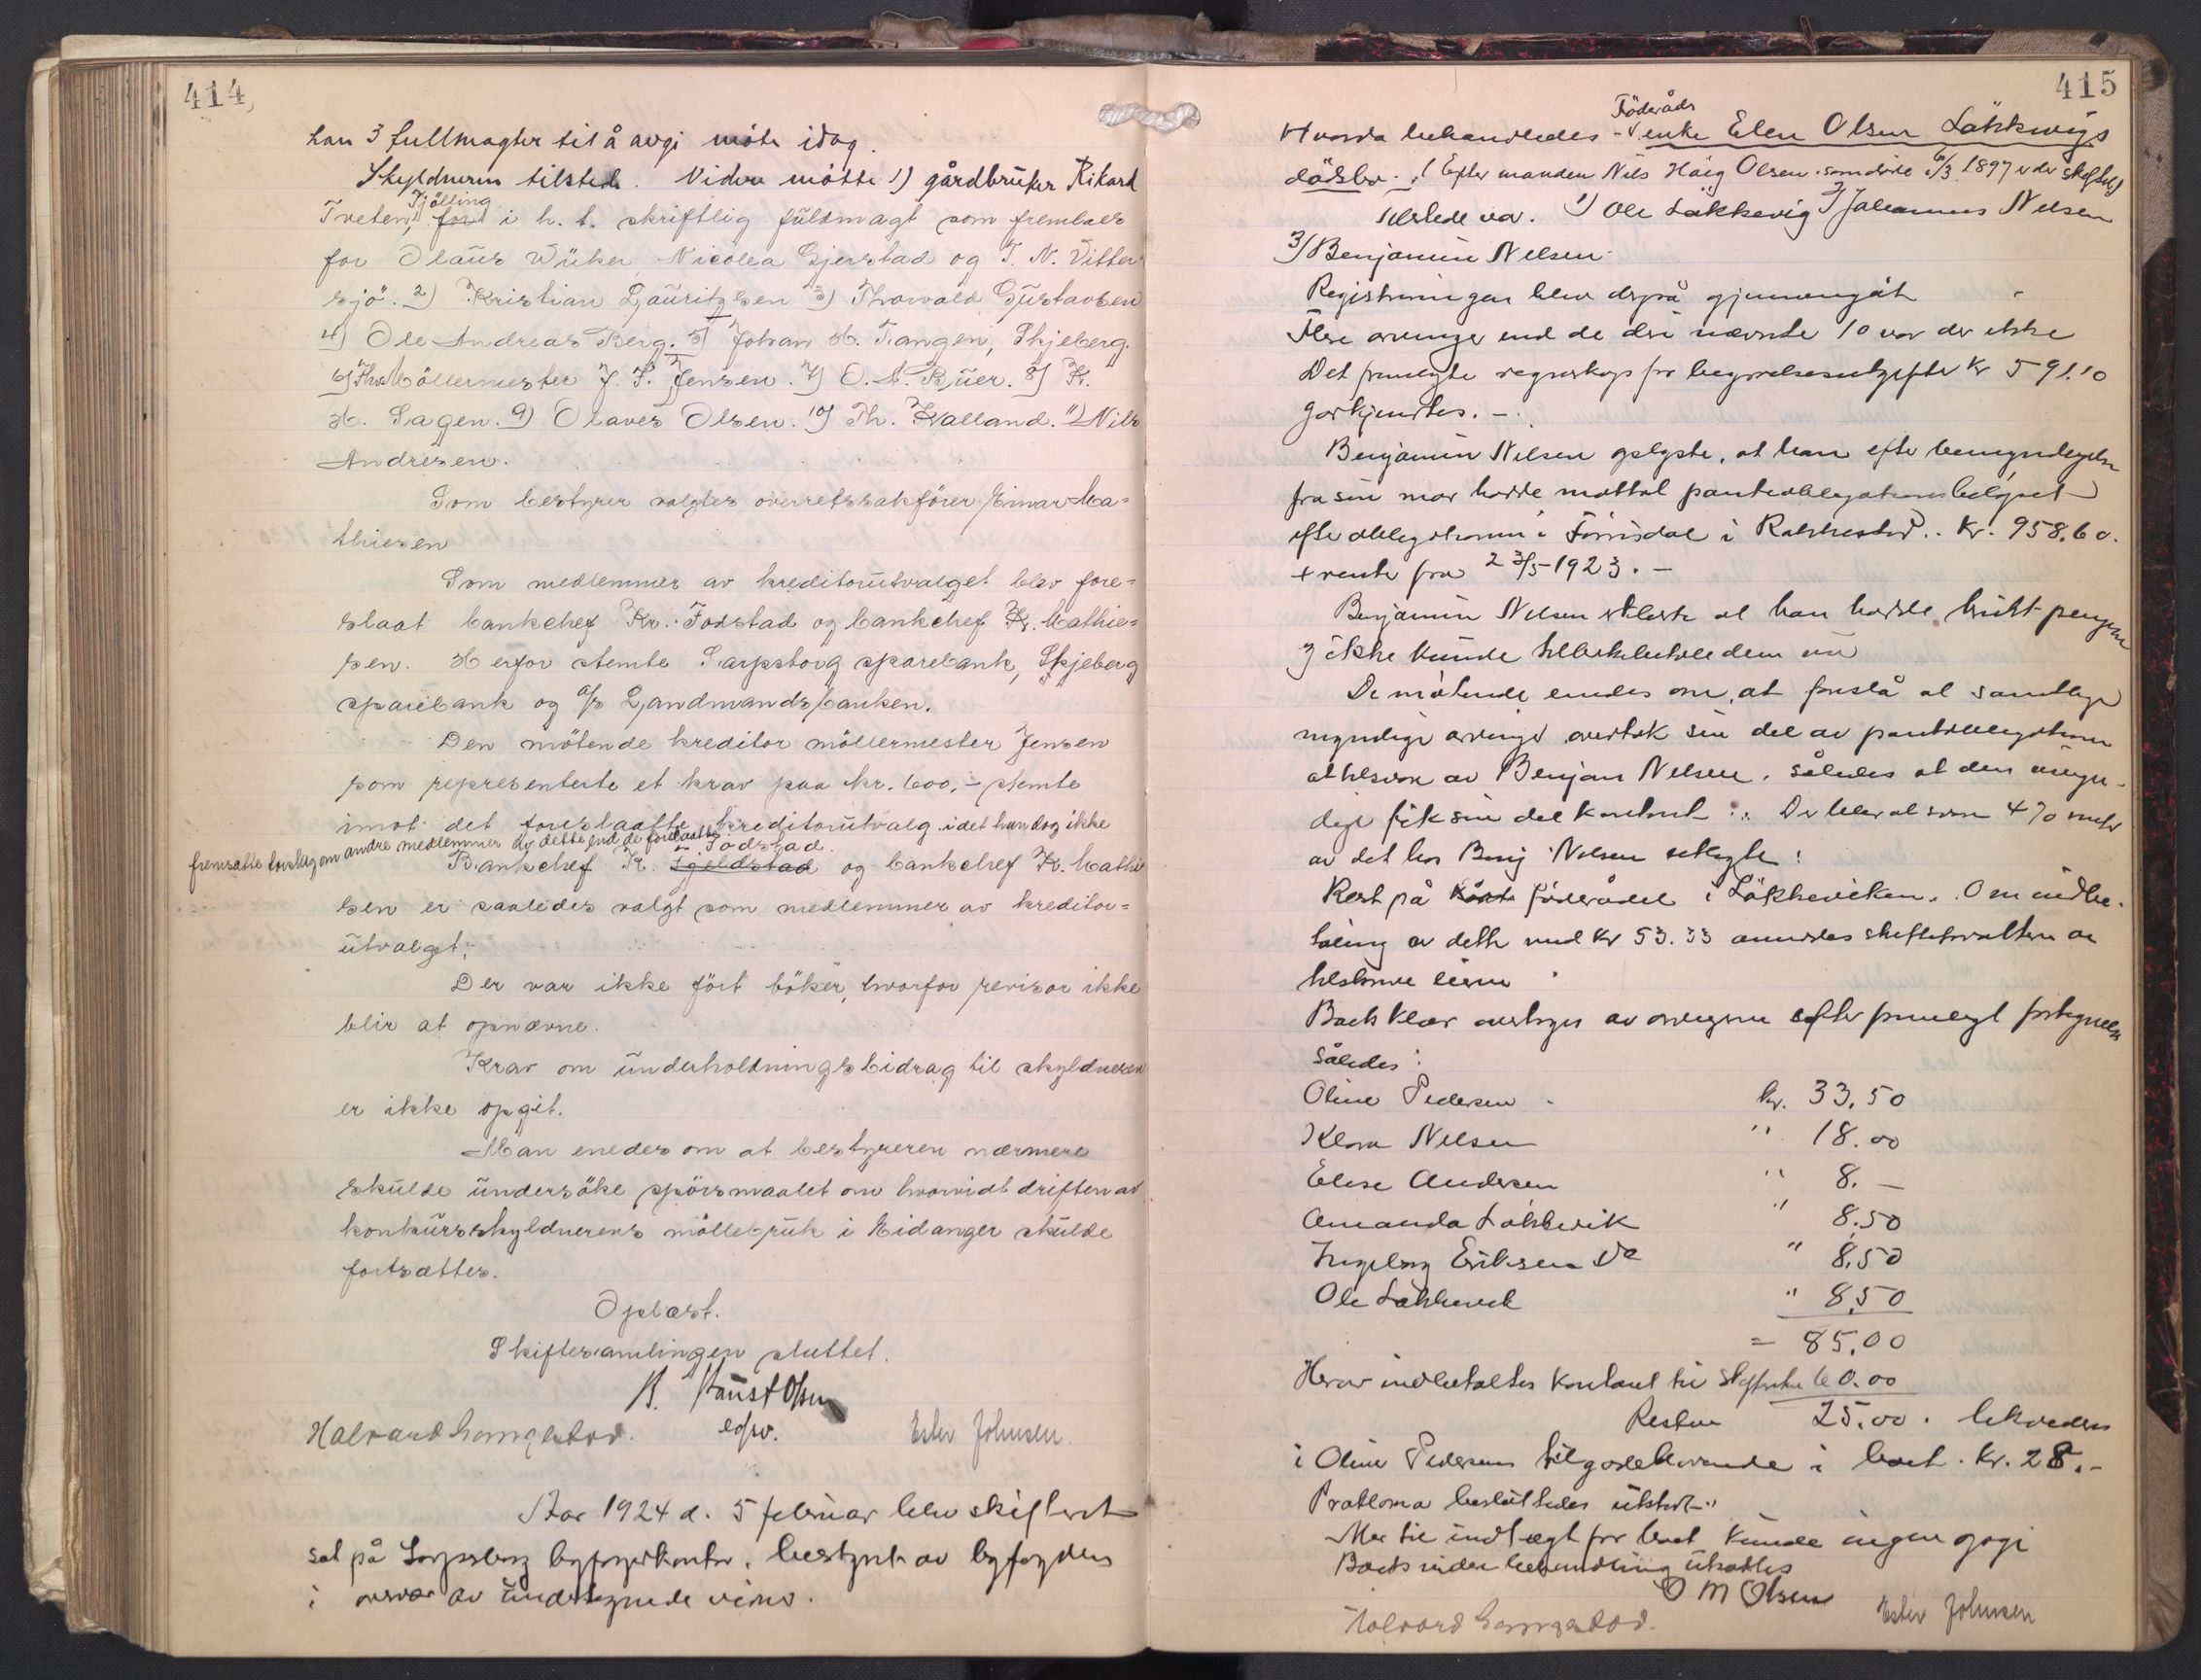 414
han 3 fullmagter til å avgi møte idag.
Skyldneren tilstede. Videre møtte 1) gårdbruker Rikard
Tjölling
Tveten, for i h. t. skriftlig fuldmagt som fremlaes
for Olaus Wüker, Nicolea Gjerstad og T. N. Vitter-
sjö. 2) Kristian Lauritzsen 3) Thorvald Gustavsen
4) Ole Andreas Berg. 5) Johan H. Tangen, Skjeberg.
6) Möllermester J. F. Jensen. 7) O. A. Buer. 8) K.
H. Hagen. 9) Olaves Olsen. 10) Th. Kvalland. 11) Nils
Andresen.
Som bestyrer valgtes overretssakförer Einar Ma-
thiesen
Som medlemmer av kreditorutvalget blev fore-
slaat bankchef Kr. Fodstad og bankchef K. Mathie-
sen. Herfor stemte Sarpsborg sparebank, Skjeberg
sparebank og a/s Landmandsbanken.
Den mötende kreditor möllermester Jensen
som representerte et krav paa kr. 600,- stemte
imot det foreslaatte kreditorutvalg. idet han dog ikke
fremsatte forslag om andre medlemmer av dette end de foreslaatte.
Fodstad.
Bankchef Kr. Fjeldstad og bankchef K. Mathie
sen er saaledes valgt som medlemmer av kreditor-
utvalget.
Der var ikke fört böker, hvorfor revisor ikke
blir at opnævne.
Krav om underholdningsbidrag til skyldneren
er ikke opgit.
Man enedes om at bestyreren nærmere
skulde undersöke spörsmaalet om hvorvidt driften av
konkursskyldnerens möllebruk i Eidanger skulde
fortsættes.
Oplæst.
Skiftesamlingen sluttet.
B. Faust Olsen
Halvard Gamgestad. eofw. Ester Johnsen.
Aar 1924 d. 5 februar blev skifteret
sat på Sarpsborg byfogedkontor. bestyrt av byfogden
i nærvær av undertegnede vidner.
415
Föderåds
Hvorda behandledes - enke Elen Olsen Løkkevigs
dødsbo. (Efter manden Nils Høeg Olsen som døde 6/3 1897 er der skiftet)
Tilstede var. 1) Ole Løkkevig 2) Johannes Nelsen
3) Benjamin Nelsen.
Registreringen blev derpå gjennemgåt
Flere arvinger end de der nævnte 10 var der ikke
Det fremlagte regnskap for begravelsesutgifter Kr 591.10
godkjendtes. -
Benjamin Nelsen oplyste, at han efter bemyndigelse
fra sin mor hadde mottat pantobligationsbeløpet
efter obligationen i Förrisdal i Rakkestad.. Kr. 958.60.
+ rente fra 23/5-1923. -
Benjamin Nelsen erklærte at han hadde brukt pengene
og ikke kunde tilbakebetale dem nu
De møtende enedes om, at foreslå at samtlige
myndige arvinger overtok sin del av pantobligationen
at tilsvare av Benjam Nelsen, således at den umyn-
dige fik sin del kontant :. Der blev al svare 4 % rente
av det hos Benj Nelsen utlagte.
Rest på föderådet i Løkkeviken. Om indbe-
taling av dette med Kr 53.33 anmodes skifteforvalteren at
tilskrive eieren
Boets klær overtages av arvingerne efter fremlagt fortegnelse
således:
Oline Pedersen - kr. 33.50
Klara Nelsen " 18.00
Elise Andersen " 8.—
Amanda Løkkevik " 8.50
Ingeborg Eriksen Da " 8.50
Ole Løkkevik " 8.50
= 85.00
Herav indbetaltes kontant til skifteretten 60.00
Resten 25.00. likvideres
i Oline Pedersens tilgodehavende i boet. Kr. 28.-
Proklama besluttedes utstedt.
Mer til indtægt for boet kunde ingen opgi
Boets videre behandling utsattes
O M Olsen
Halvard Gamgestad. Ester Johnsen